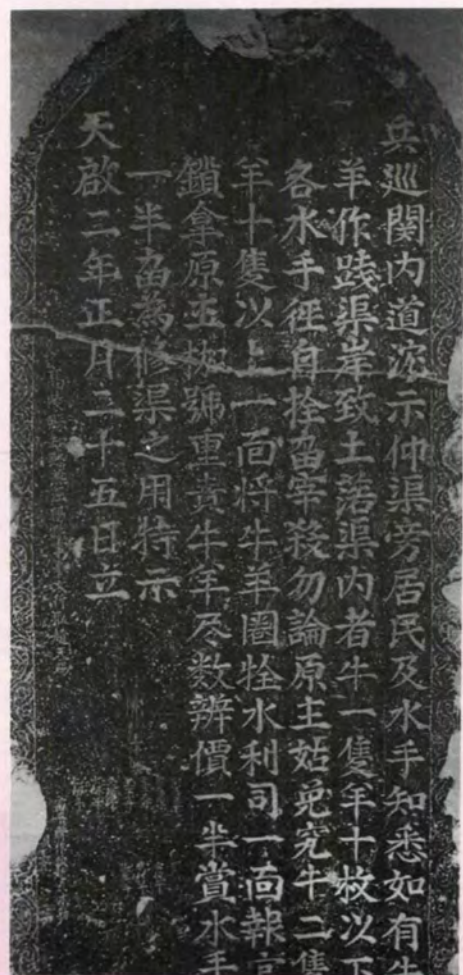 兵巡関内道深示仰渠旁居民及水手知悉如有牛
羊作践渠岸致土落渠内者牛一隻羊十敉以下
各水手径自拴畱宰殺勿論原主姑免究牛二隻
羊十隻以上一面将牛羊圈栓水利司一面報
鎖拿原主枷號重責牛羊尽数辨價一半賞水手
一半畱為修渠之用特示
天啟二年正月二十五日立